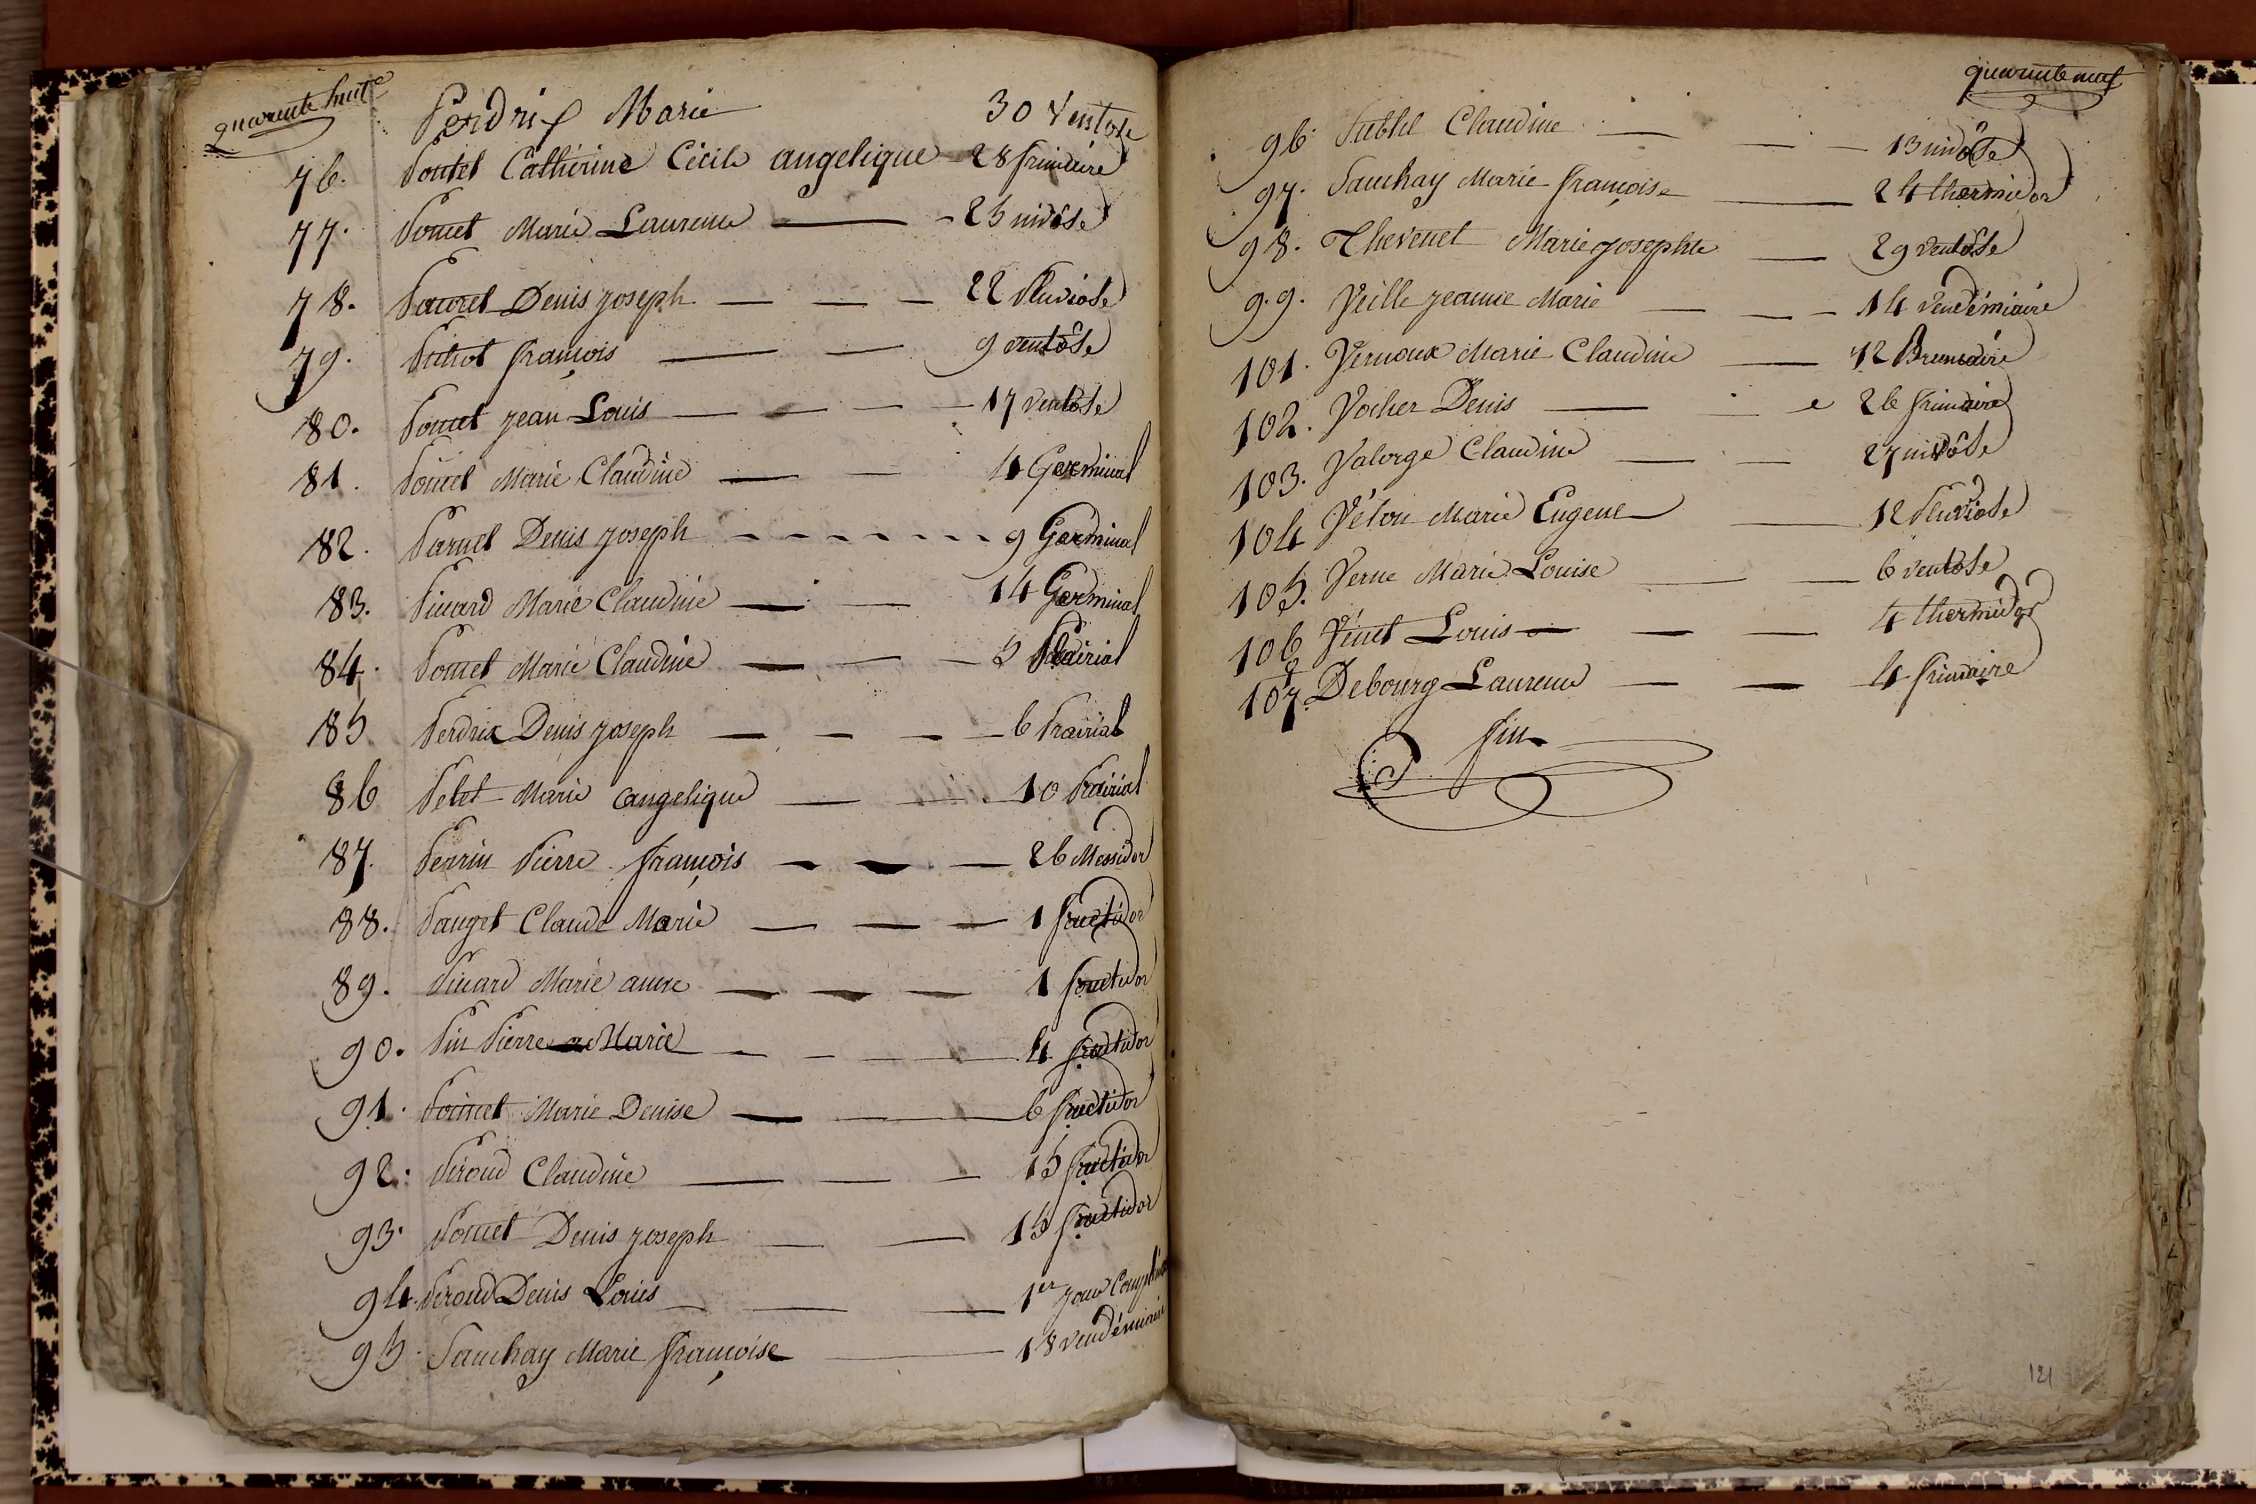 quarente huit
Perdrix Marie 30 Ventose
76. Pontet Catherine Cécile angelique 28 frimaire
77. Poncet Marie Laurence 25 nivôse
78. Pauret Denis joseph 22 Pluviose
79. Pithot françois 9 ventôse
80. Poncet jean Louis 17 ventôse
81. Poncet Marie Claudine 4 Germinal
82. Parnet Denis joseph 9 Germinal
83. Pinard Marie Claudine 14 Germinal
84. Poncet Marie Claudine 5 Prairial
85 Perdrix Denis joseph 6 Prairial
86 Petet Marie angelique 10 Prairial
87. Perrin Pierre françois 26 Messidor
88. Pauget Claude Marie 1 fructidor
89. Pinard Marie anne 1 fructidor
90. Pin Pierre Marie 4 fructidor
91. Poncet Marie Denise 6 fructidor
92. Piroud Claudine 15 fructidor
93. Poncet Denis joseph 15 fructidor
94. Piroud Denis Louis 1er jour Complém
95. Sauchay Marie françoise 18 vendémiaire
quarente neuf
96. Subtil Claudine 13 nivôse
97. Sauchay Marie françoise 24 thermidor
98. Thevenet Marie josephte 29 ventôse
99. Veille jeanne Marie 14 vendémiaire
101. Vernoux Marie Claudine 12 Brumaire
102. Vocher Denis 26 frimaire
103. Valorge Claudine 27 nivôse
104 Véton Marie Eugene 12 Pluviose
105. Verne Marie Louise 6 ventôse
106 Vinet Louis 4 thermidor
107. Debourg Laurence 4 frimaire
fin
121